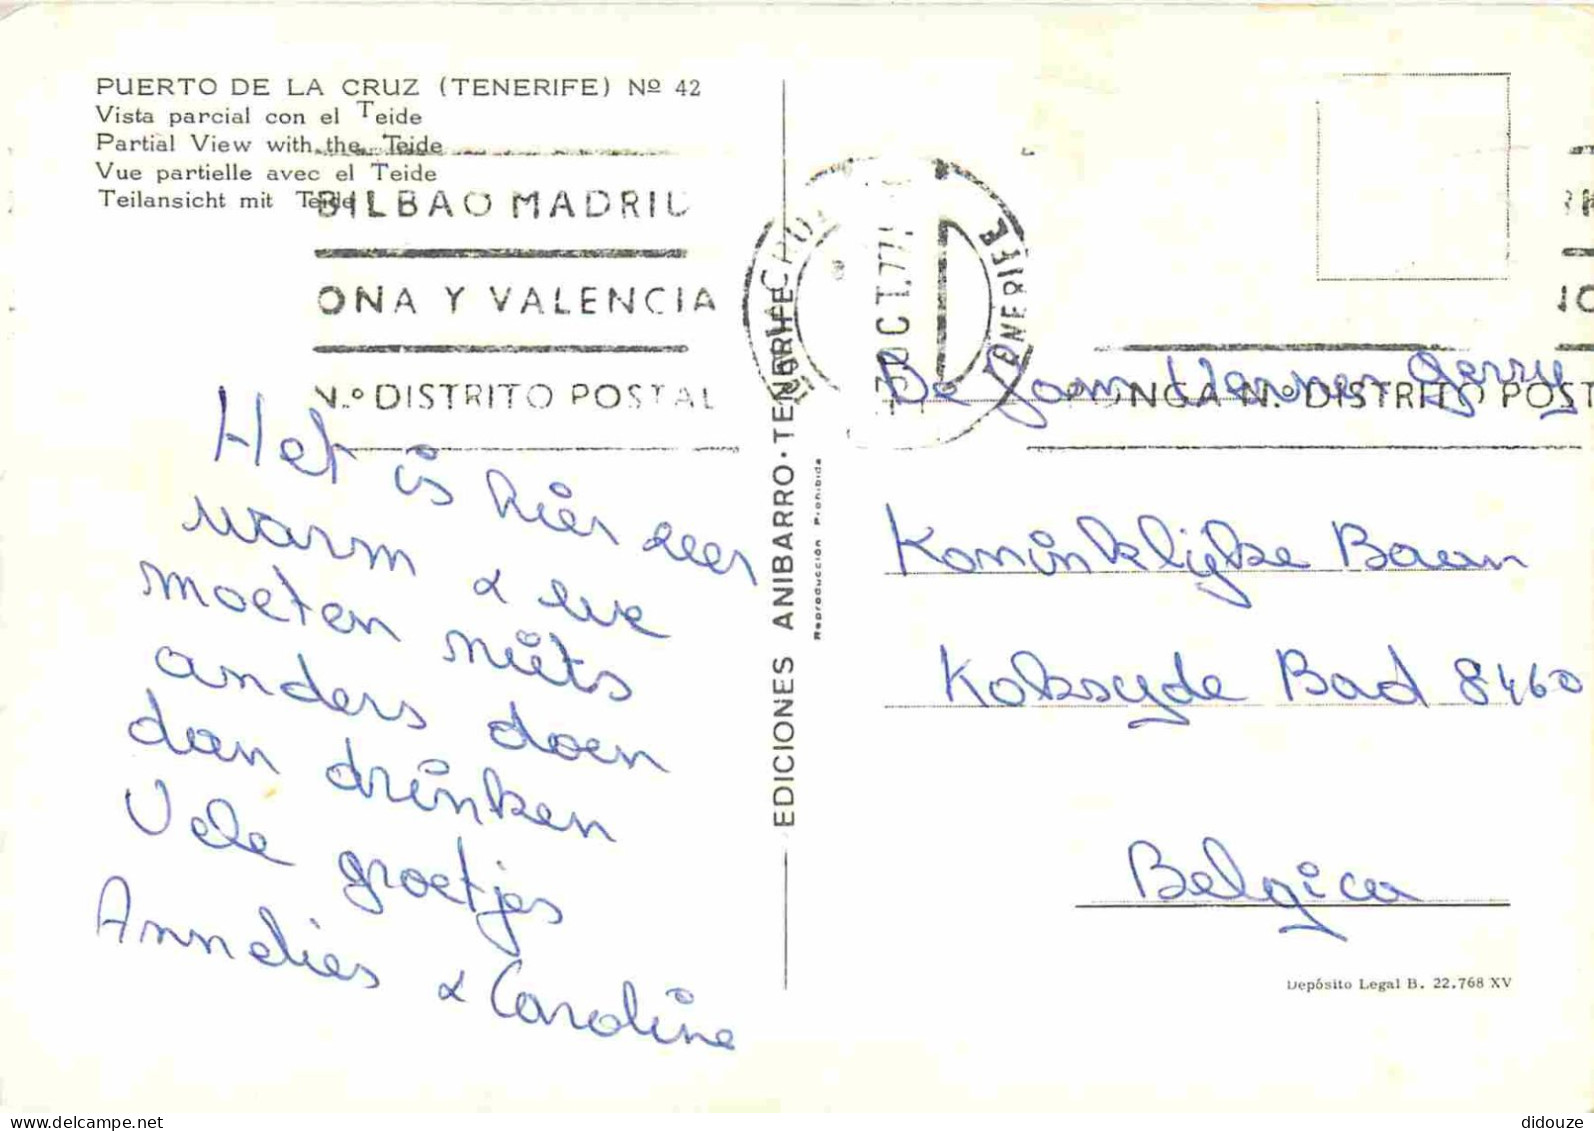 PUERTO DE LA CRUZ (TENERIFE) Nº 42
Vista parcial con el Teide
Partial View with the Teide
Vue partielle avec el Teide
Teilansicht mit Teide
BILBAO MADRID
ONA Y VALENCIA
N.º DISTRITO POSTAL
Het is hier zeer
warm & we
moeten niets
anders doen
dan drinken
Vele groetjes
Annelies & Caroline
EDICIONES ANIBARRO - TENERIFE
Reproducción Prohibida
CRUZ
TENERIFE
OCT.77
PONGA N.º DISTRITO POST
De Jerry
Koninklijke Baan
Koksyde Bad 8460
Belgica
Depósito Legal B. 22.768 XV
didouze